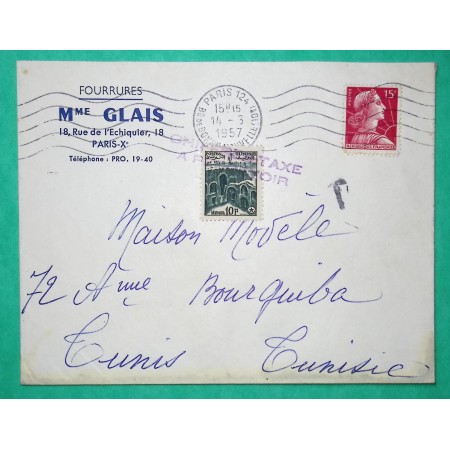 FOURRURES
Mme GLAIS
18, Rue de l'Echiquier, 18
PARIS-Xe
Téléphone : PRO. 19-40
PARIS 124
15H15
14 - 3
1957
15F
TAXE
A
OIR
10F
T
Maison Modèle
72 Anue Bourguiba
Tunis Tunisie